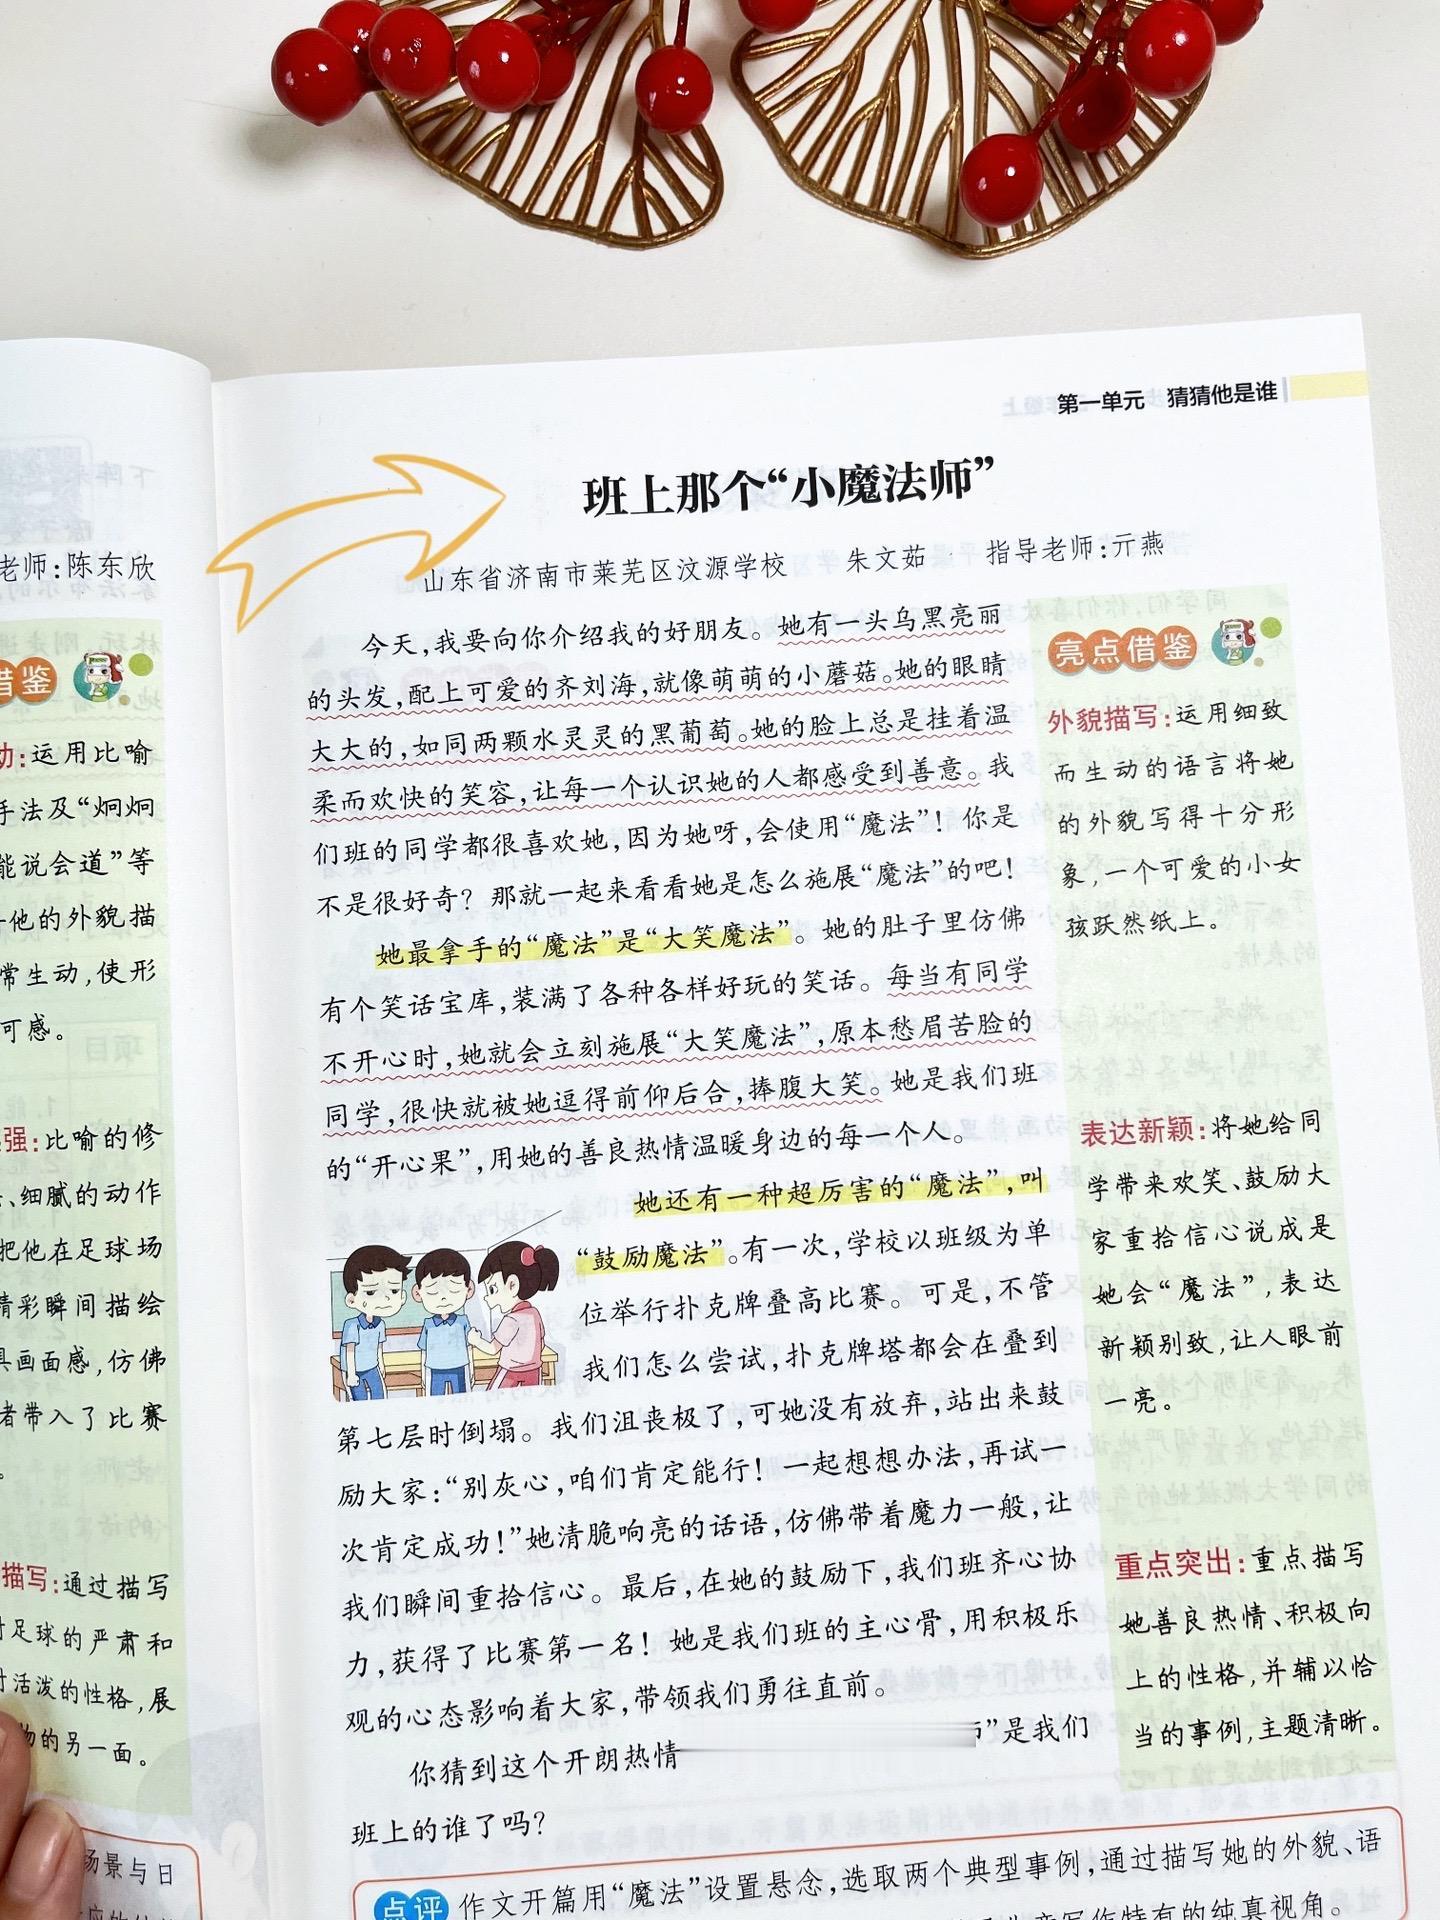 老师:陈东欣
借鉴
动:运用比喻
手法及“炯炯
能说会道”等
他的外貌描
常生动,使形
可感。
强:比喻的修
、细腻的动作
把他在足球场
精彩瞬间描绘
具画面感,仿佛
者带入了比赛
描写:通过描写
对足球的严肃和
时活泼的性格,展
物的另一面。
场景与日
第一单元 猜猜他是谁
班上那个“小魔法师”
山东省济南市莱芜区汶源学校 朱文茹 指导老师:亓燕
今天,我要向你介绍我的好朋友。她有一头乌黑亮丽
的头发,配上可爱的齐刘海,就像萌萌的小蘑菇。她的眼睛
大大的,如同两颗水灵灵的黑葡萄。她的脸上总是挂着温
柔而欢快的笑容,让每一个认识她的人都感受到善意。我
们班的同学都很喜欢她,因为她呀,会使用“魔法”!你是
不是很好奇?那就一起来看看她是怎么施展“魔法”的吧!
她最拿手的“魔法”是“大笑魔法”。她的肚子里仿佛
有个笑话宝库,装满了各种各样好玩的笑话。每当有同学
不开心时,她就会立刻施展“大笑魔法”,原本愁眉苦脸的
同学,很快就被她逗得前仰后合,捧腹大笑。她是我们班
的“开心果”,用她的善良热情温暖身边的每一个人。
她还有一种超厉害的“魔法”,叫
“鼓励魔法”。有一次,学校以班级为单
位举行扑克牌叠高比赛。可是,不管
我们怎么尝试,扑克牌塔都会在叠到
第七层时倒塌。我们沮丧极了,可她没有放弃,站出来鼓
励大家:“别灰心,咱们肯定能行!一起想想办法,再试一
次肯定成功!”她清脆响亮的话语,仿佛带着魔力一般,让
我们瞬间重拾信心。最后,在她的鼓励下,我们班齐心协
力,获得了比赛第一名!她是我们班的主心骨,用积极乐
观的心态影响着大家,带领我们勇往直前。
你猜到这个开朗热情 ”是我们
班上的谁了吗?
亮点借鉴
外貌描写:运用细致
而生动的语言将她
的外貌写得十分形
象,一个可爱的小女
孩跃然纸上。
表达新颖:将她给同
学带来欢笑、鼓励大
家重拾信心说成是
她会“魔法”,表达
新颖别致,让人眼前
一亮。
重点突出:重点描写
她善良热情、积极向
上的性格,并辅以恰
当的事例,主题清晰。
点评 作文开篇用“魔法”设置悬念,选取两个典型事例,通过描写她的外貌、语
写作特有的纯真视角。